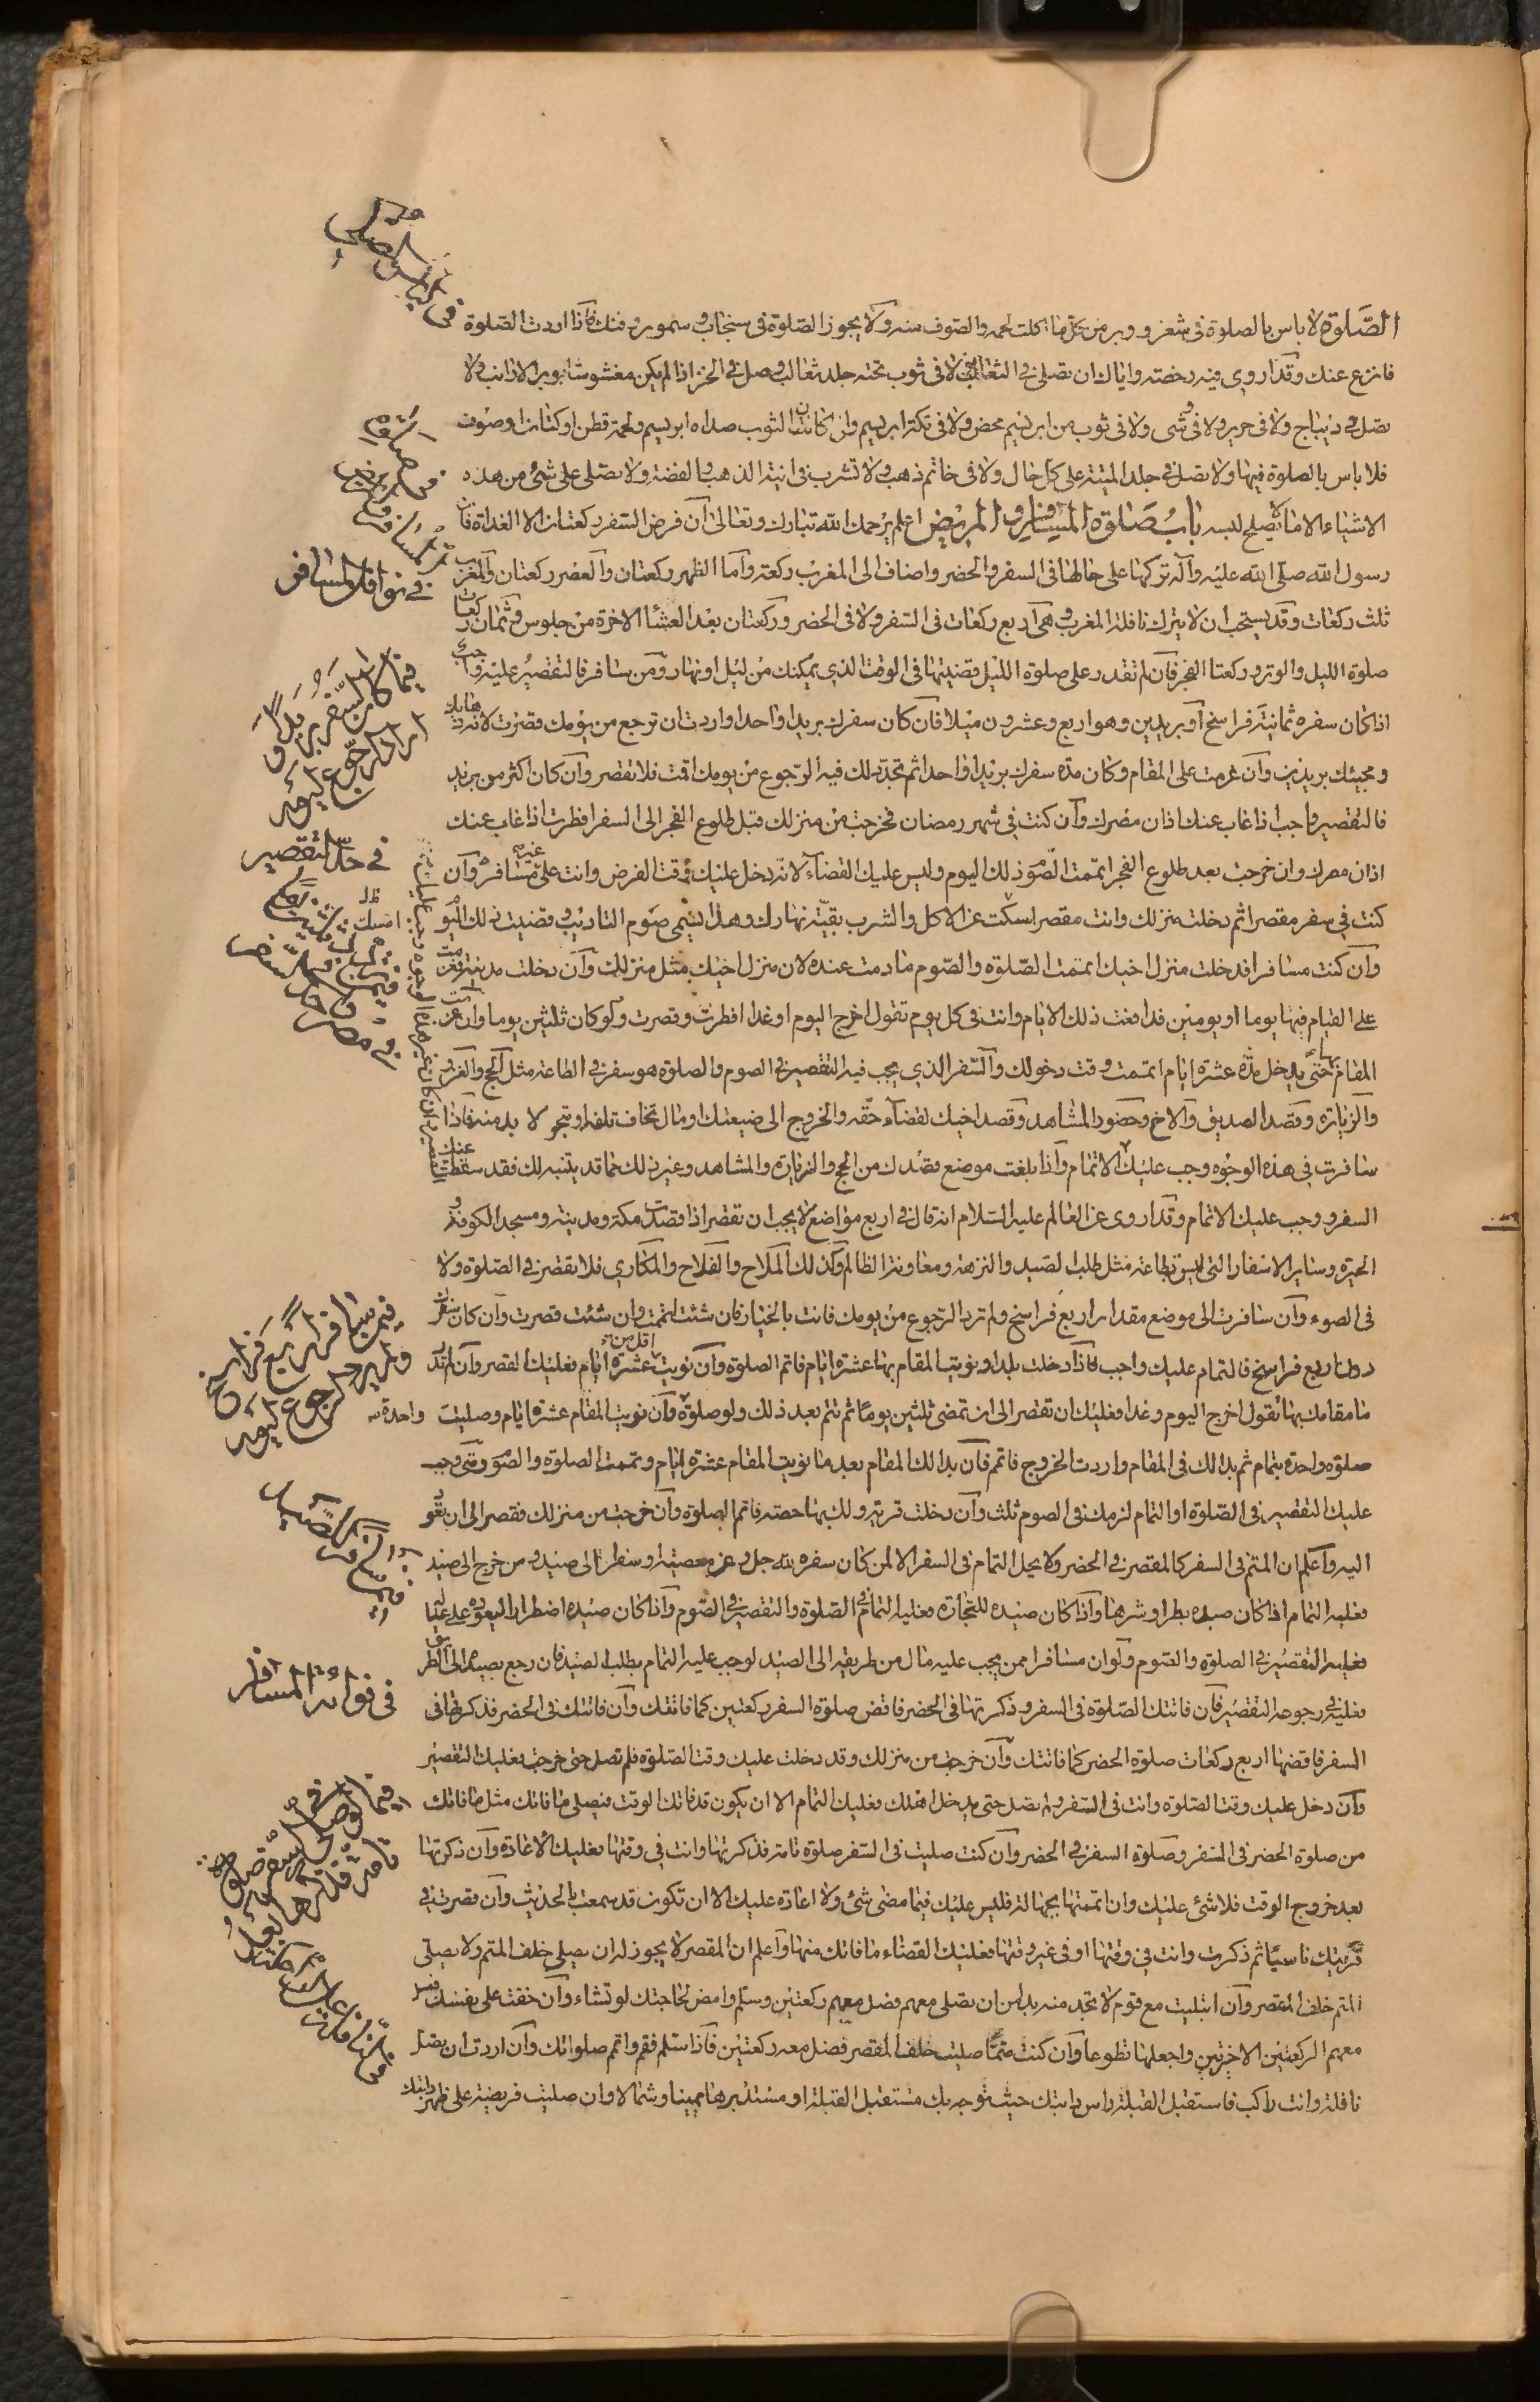 الصّلوة لا باس بالصلوة فى شعر ووبر من كلّ ما اكلت لحمه والصّوف منه ولا يجوز الصّلوة فى سنجاب وسمور وفنك فاذا اردت الصّلوة
فانزع عنك وقد اروى فيه رخصة واياك ان تصلى فى الثعالب ولا فى ثوب تحته جلد ثعالب وصل فى الخز اذا لم يكن مغشوشا بوبر الارانب ولا
تصل فى ديباج ولا فى حرير ولا فى وشى ولا فى ثوب من ابريسم محض ولا فى تكة ابريسم وان كان الثوب سداه ابريسم ولحمة قطن او كتان او صوف
فلا باس بالصلوة فيها ولا تصل فى جلد الميتة على كل حال ولا فى خاتم ذهب ولا تشرب فى انية الذهب والفضة ولا تصلى على شئ من هذه
الاشياء الا ما لا يصلح لبسه باب صلوة المسافر والمريض اعلم يرحمك الله تبارك وتعالى ان فرض السّفر ركعتان الا الغداة فان
رسول الله صلّى الله عليه وآله تركها على حالها فى السفر والحضر واضاف الى المغرب ركعة وامّا الظهر ركعتان والعصر ركعتان والمغرب
ثلث ركعات وقد يستحب ان لا يترك نافلة المغرب وهى اربع ركعات فى السّفر ولا فى الحضر وركعتان بعد العشا الاخرة من جلوس وثمان ركعات
صلوة الليل والوتر وركعتا الفجر فان لم تقدر على صلوة اللّيل قضيتها فى الوقت الذي يمكنك من ليل او نهار ومن سافر فالتقصير عليه واجب
اذا كان سفره ثمانية فراسخ او بريدين وهو اربع وعشرون ميلا فان كان سفرك بريدا واحدا واردت ان ترجع من يومك قصرت لانه ذهابك
ومجيئك بريدين وان عزمت على المقام وكان مدة سفرك بريدا واحدا ثم تجدّد لك فيه الرّجوع من يومك اقمت فلا تقصر وان كان اكثر من بريد
فالتقصير واجب اذا غاب عنك اذان مصرك وان كنت فى شهر رمضان فخرجت من منزلك قبل طلوع الفجر الى السفر افطرت اذا غاب عنك
اذان مصرك وان خرجت بعد طلوع الفجر اتممت الصّوم ذلك اليوم وليس عليك القضاء لانّه دخل عليك وقت الفرض وانت على غير مسافرة وان
كنت فى سفر مقصرا ثم دخلت منزلك وانت مقصر امسكت عن الاكل والشرب بقيّة نهارك وهذا يسمى صوم التاديب وقضيت ذلك اليوم
وان كنت مسافرا فدخلت منزل اخيك اتممت الصّلوة والصّوم ما دمت عنده لان منزل اخيك مثل منزلك وان دخلت مدينة فعزمت
على القيام فيها يوما او يومين فدافعت ذلك الايام وانت فى كل يوم تقول اخرج اليوم او غدا افطرت وقصرت ولو كان ثلثين يوما وان عزمت
المقام حتى يدخل مدّة عشرة ايام اتممت وقت دخولك والسّفر الذي يجب فيه التقصير فى الصوم والصلوة هو سفر فى الطاعة مثل الحج والغزو
والزيارة وقصد الصديق والاخ وحضور المشاهد وقصد اخيك لقضاء حقّه والخروج الى ضيعتك او مال تخاف تلفه او متجر لا بد منه فاذا
سافرت فى هذه الوجوه وجب عليك الاتمام واذا بلغت موضع قصدك من الحج والزيارة والمشاهد وغير ذلك مما قد بيّنته لك فقد سقطت عنك
السفر ووجب عليك الاتمام وقد اروى عن العالم عليه السّلام انه قال فى اربع مواضع لا يجب ان تقصر اذا قصدت مكة ومدينة ومسجد الكوفة و
الحيرة وساير الاسفار التى ليس بطاعة مثل طلب الصّيد والنزهة ومعاونة الظالم وكذلك الملاح والفلاح والمكاري فلا تقصر فى الصّلوة ولا
فى الصوم وان سافرت الى موضع مقدار اربع فراسخ ولم ترد الرّجوع من يومك فانت بالخيار فان شئت اتممت وان شئت قصرت وان كان سفرك
دون اربع فراسخ فالتمام عليك واجب فاذا دخلت بلدا ونويت المقام بها عشرة ايام فاتم الصلوة وان نويت اقل من عشرة ايام فعليك القصر وان لم تدر
ما مقامك بها تقول اخرج اليوم وغدا فعليك ان تقصر الى ان تمضى ثلثين يوما ثم تتم بعد ذلك ولو صلوة وان نويت المقام عشرة ايام وصليت واحدة
صلوة واحدة بتمام ثم بدا لك فى المقام واردت الخروج فاتم فان بدا لك المقام بعد ما نويت المقام عشرة ايام وتممت الصلوة والصّوم ومتى وجب
عليك التقصير فى الصّلوة او التمام لزمك فى الصوم ثلث وان دخلت قرية ولك بها حصة فاتم الصلوة وان خرجت من منزلك فقصر الى ان تعود
اليه واعلم ان المتمّ فى السفر كالمقصر فى الحضر ولا يحل التمام فى السفر الا لمن كان سفره لله جل وعز معصية او سفرا الى صيد ومن خرج الى صيد
فعليه التمام اذا كان صيده بطرا وشرها واذا كان صيده للتجارة فعليه التمام فى الصّلوة والتقصير فى الصّوم واذا كان صيده اضطرارا ليعوده على عياله
فعليه التقصير فى الصلوة والصّوم ولو ان مسافرا ممن يجب عليه مال من طريقه الى الصيد لوجب عليه التمام بطلب الصيد فان رجع بصيده الى الطريق
فعليه فى رجوعه التقصير فان فاتتك الصّلوة فى السفر وذكرتها فى الحضر فاقض صلوة السفر ركعتين كما فاتتك وان فاتتك فى الحضر فذكرتها فى
السفر فاقضها اربع ركعات صلوة الحضر كما فاتتك وان خرجت من منزلك وقد دخلت عليك وقت الصّلوة فلم تصل حتى خرجت فعليك التقصير
وان دخل عليك وقت الصّلوة وانت فى السّفر ولم تصل حتى يدخل اهلك فعليك التمام الا ان يكون قد فاتك الوقت فتصلى ما فاتك مثل ما فاتك
من صلوة الحضر فى السّفر وصلوة السفر فى الحضر وان كنت صليت فى السّفر صلوة تامة فذكرتها وانت فى وقتها فعليك الاعادة وان ذكرتها
بعد خروج الوقت فلا شئ عليك وان اتممتها بجهالة فليس عليك فيما مضى شئ ولا اعادة عليك الا ان تكون قد سمعت بالحديث وان قصرت فى
قريتك ناسيا ثم ذكرت وانت فى وقتها او فى غير وقتها فعليك القضاء ما فاتك منها واعلم ان المقصر لا يجوز له ان يصلى خلف المتم ولا يصلى
المتم خلف المقصر وان ابتليت مع قوم لا تجد منه بدا من ان تصلى معهم فصل معهم ركعتين وسلم وامض لحاجتك لو تشاء وان خفت على نفسك فصل
معهم الركعتين الاخرتين واجعلها تطوعا وان كنت متمّا صليت خلف المقصر فصل معه ركعتين فاذا سلم فقم واتم صلواتك وان اردت ان تصل
نافلة وانت راكب فاستقبل القبلة راس دابتك حيث توجه بك مستقبل القبلة او مستدبرها يمينا وشمالا وان صليت فريضة على ظهر دابتك
فى نوافل المسافر
فيما كان السّفر بريدا و
اراد الرّجوع ليومه
فى حدّ التقصير
فيمن سافر اربع فراسخ
ولم يرد الرجوع ليومه
فى فوائت المسافر